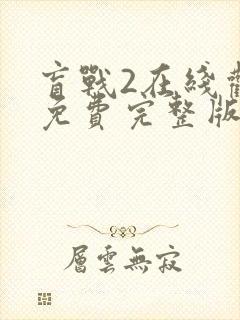 盲戰2在綫
免費完整版
層雲無寂